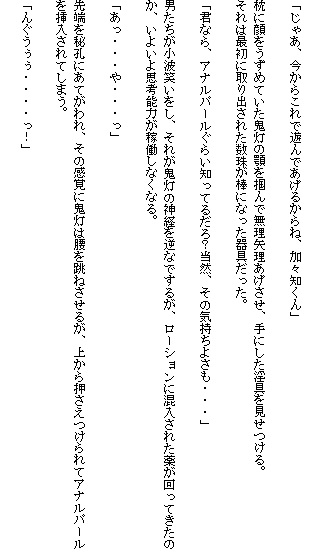 「じゃあ、今からこれで遊んであげるからね、加々知くん」
枕に顔をうずめていた鬼灯の顎を掴んで無理矢理あげさせ、手にした淫具を見せつける。
それは最初に取り出された数珠が棒になった器具だった。
「君なら、アナルパールぐらい知ってるだろ?当然、その気持ちよさも・・・」
男たちが小波笑いをし、それが鬼灯の神経を逆なでするが、ローションに混入された薬が回ってきたの
か、いよいよ思考能力が稼働しなくなる。
「あっ・・・や・・・っ」
先端を秘孔にあてがわれ、その感覚に鬼灯は腰を跳ねさせるが、上から押さえつけられてアナルパール
を挿入されてしまう。
「んぐうぅぅ・・・・っ!」